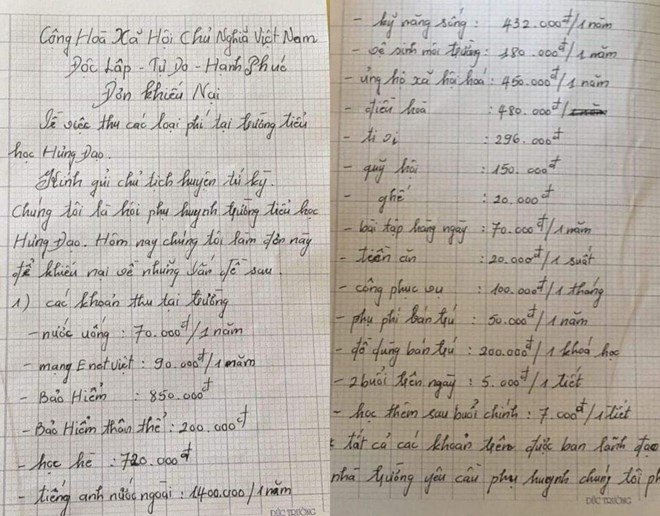 Công Hoà Xã Hội Chủ Nghĩa Việt Nam
Độc Lập - Tự Do - Hạnh Phúc
Đơn Khiếu Nại
Về việc thu các loại phí tại trường tiểu
học Hưng Đạo.
Kính gửi chủ tịch huyện tứ kỳ.
Chúng tôi là hội phụ huynh trường tiểu học
Hưng Đạo. Hôm nay chúng tôi làm đơn này
để khiếu nại về những vấn đề sau.
1) các khoản thu tại trường
- nước uống : 70.000đ/1 năm
- mạng Enetviệt : 90.000đ/1 năm
- Bảo Hiểm : 850.000đ
- Bảo Hiểm thân thể : 200.000đ
- học hè : 720.000đ
- tiếng anh nước ngoài : 1400.000/1 năm
ĐỨC TRƯỜNG
- kỹ năng sống : 432.000đ/1 năm
- vệ sinh môi trường : 180.000đ/1 năm
- ủng hộ xã hội hoá : 450.000đ/1 năm
- điều hoà : 480.000đ/
- ti vi : 296.000đ
- quỹ hội : 150.000đ
- ghế : 20.000đ
- bài tập hàng ngày : 70.000đ/1 năm
- tiền ăn : 20.000đ/1 suất
- công phục vụ : 100.000đ/1 tháng
- phụ phí bán trú : 50.000đ/1 năm
- đồ dùng bán trú : 200.000đ/1 khoá học
- 2 buổi trên ngày : 5.000đ/1 tiết
- học thêm sau buổi chính : 7.000đ/1 tiết
tất cả các khoản trên được ban lãnh đạo
nhà trường yêu cầu phụ huynh chúng tôi ph
ĐỨC TRƯỜNG